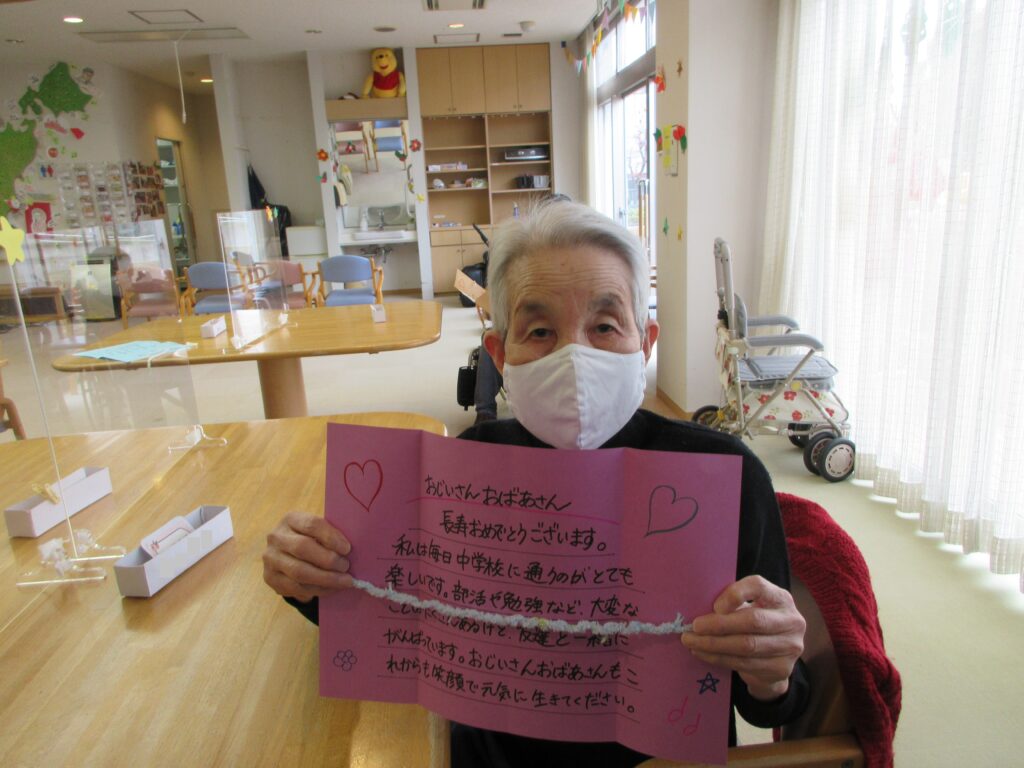 おじいさん おばあさん
長寿おめでとうございます。
私は毎日中学校に通うのがとても
楽しいです。部活や勉強など、大変な
ことはたくさんあるけど、友達と一緒に
がんばっています。おじいさんおばあさんもこ
れからも笑顔で元気に生きてください。